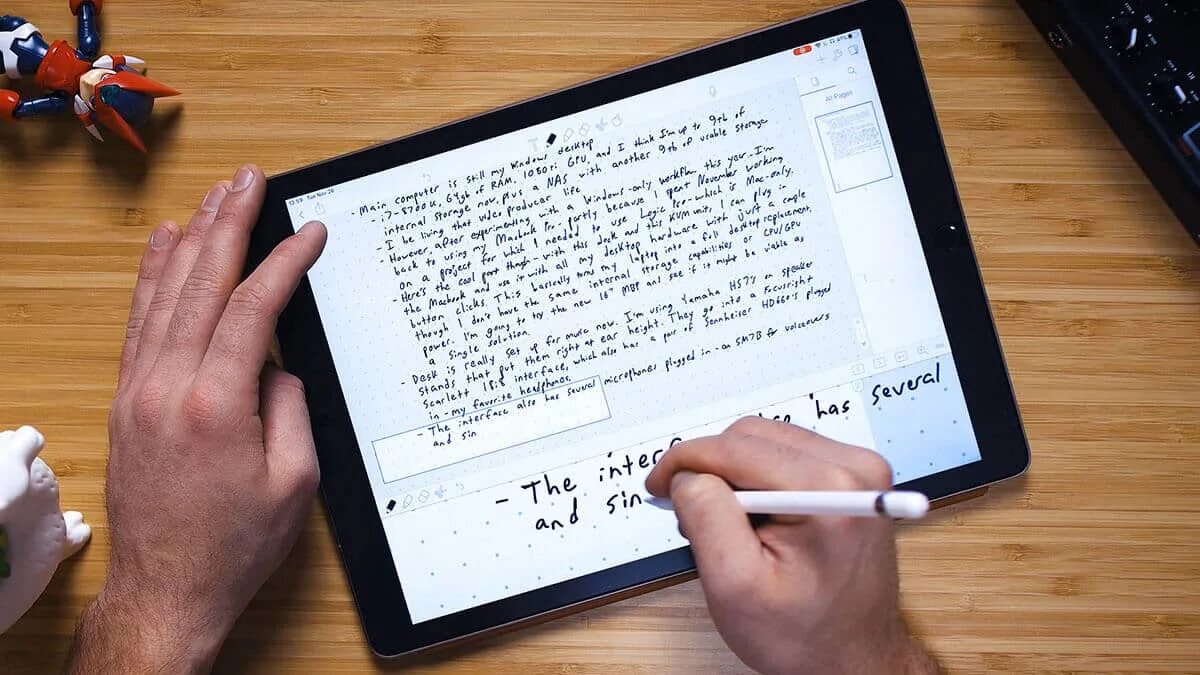 12:59 Tue Nov 26
All Pages
- Main computer is still my Windows desktop
- i7-8700K, 64gb of RAM, 1080ti GPU, and I think I'm up to 9tb of
internal storage now, plus a NAS with another 9tb of usable storage
- I be living that video producer life
- However, after experimenting with a Windows-only workflow this year I'm
back to using my Macbook Pro - partly because I spent November working
on a project for which I needed to use Logic Pro - which is Mac-only.
- Here's the cool part though - with this dock and this KVM unit, I can plug in
the Macbook and use it with all my desktop hardware with just a couple
button clicks. This basically turns my laptop into a full desktop replacement,
though I don't have the same internal storage capabilities or CPU/GPU
power. I'm going to try the new 16" MBP and see if it might be viable as
a single solution.
- Desk is really set up for music now. I'm using Yamaha HS7's on speaker
stands that put them right at ear height. They go into a Focusright
Scarlett 18i8 interface, which also has a pair of Sennheiser HD660's plugged
in - my favorite headphones.
- The interface also has several microphones plugged in - an SM7B for voiceovers
and sin
- The interf has several
and sin